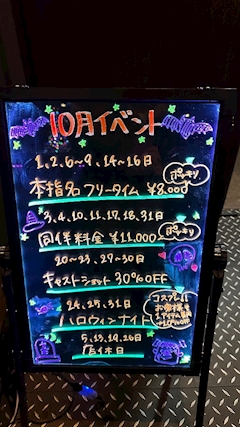 10月イベント
1,2,6~9,14~16日
ポッキリ
本指名フリータイム ¥8,000
3,4,10,11,17,18,31日
ポッキリ
同伴料金 ¥11,000
20~23,27~30日
キャストショット 30%OFF
24,25,31日
ハロウィンナイト
コスプレ!!
お客様
5,13,19,26日
店休日